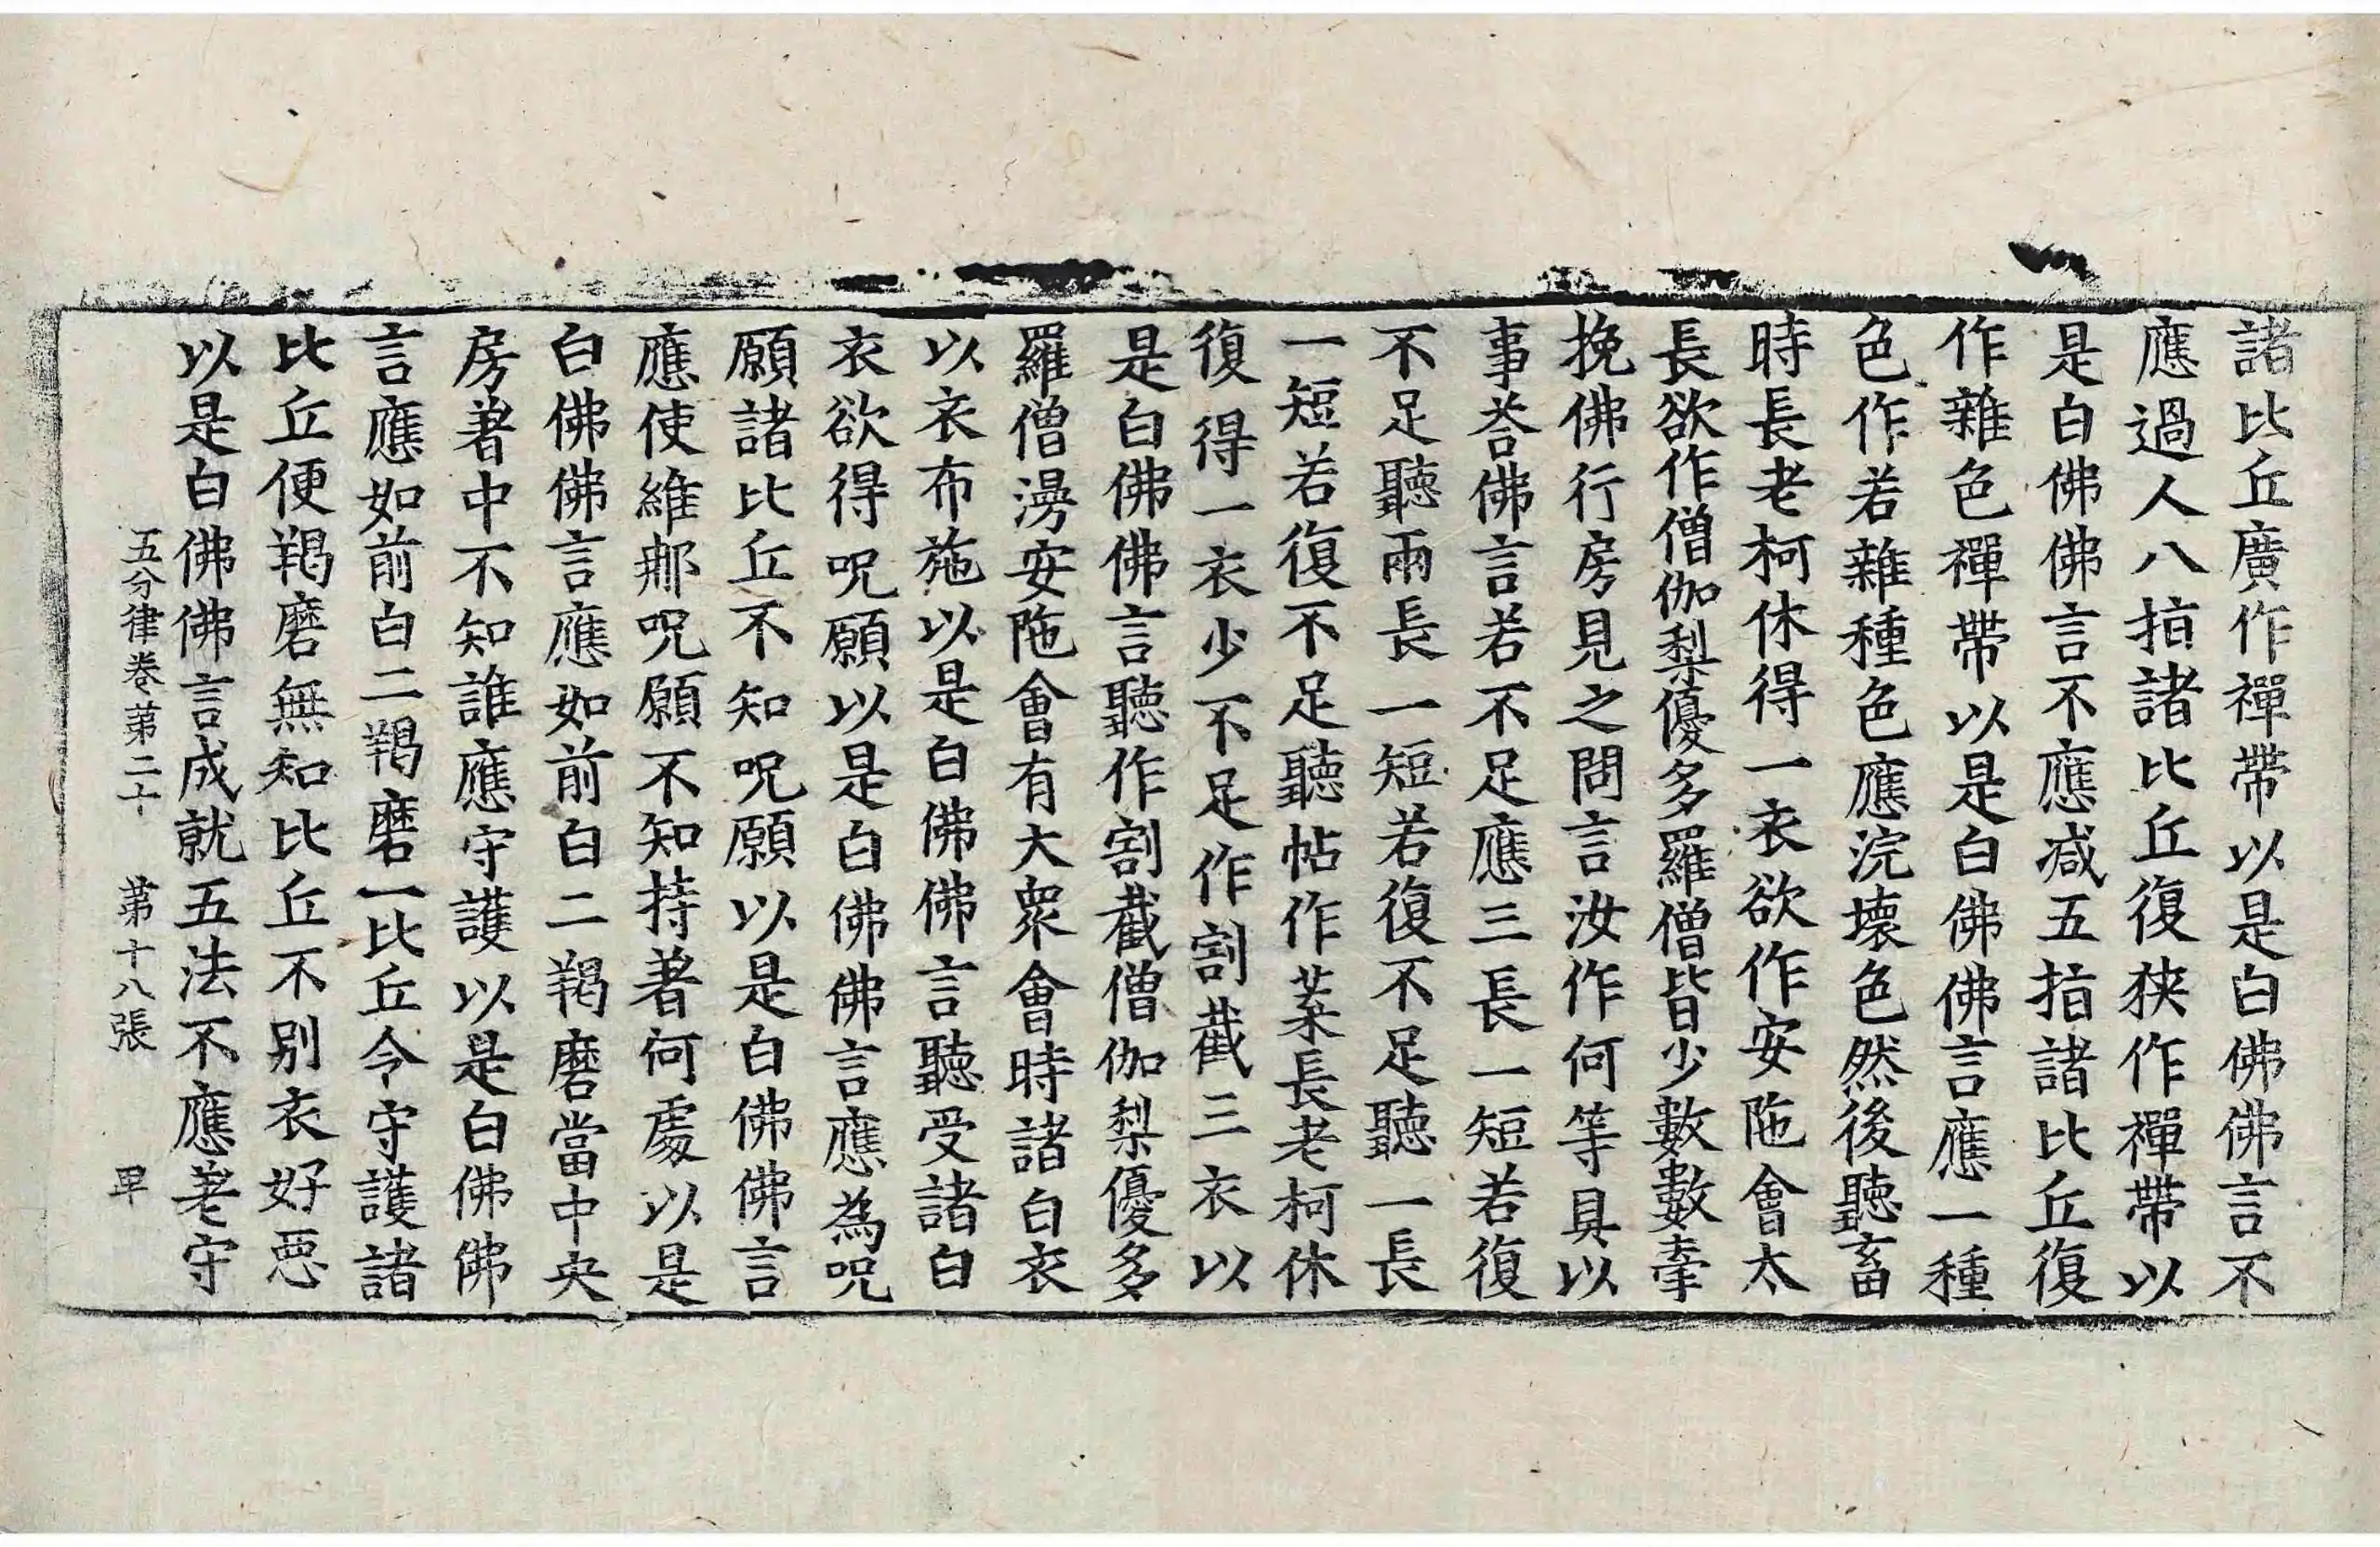 諸比丘廣作禪帶以是白佛佛言不
應過人八指諸比丘復狹作禪帶以
是白佛佛言不應减五指諸比丘復
作雜色禪帶以是白佛佛言應一種
色作若雜種色應浣壞色然後聽畜
時長老柯休得一衣欲作安陁會太
長欲作僧伽梨優多羅僧皆少數數牽
挽佛行房見之問言汝作何等具以
事荅佛言若不足應三長一短若復
不足聽兩長一短若復不足聽一長
一短若復不足聽帖作葉長老柯休
復得一衣少不足作割截三衣以
是白佛佛言聽作割截僧伽梨優多
羅僧漫安陁會有大衆會時諸白衣
以衣布施以是白佛佛言聽受諸白
衣欲得呪願以是白佛佛言應為呪
願諸比丘不知呪願以是白佛佛言
應使維那呪願不知持著何處以是
白佛佛言應如前白二羯磨當中央
房著中不知誰應守護以是白佛佛
言應如前白二羯磨一比丘令守護諸
比丘便羯磨無知比丘不別衣好惡
以是白佛佛言成就五法不應差守
五分律卷第二十　第十八張